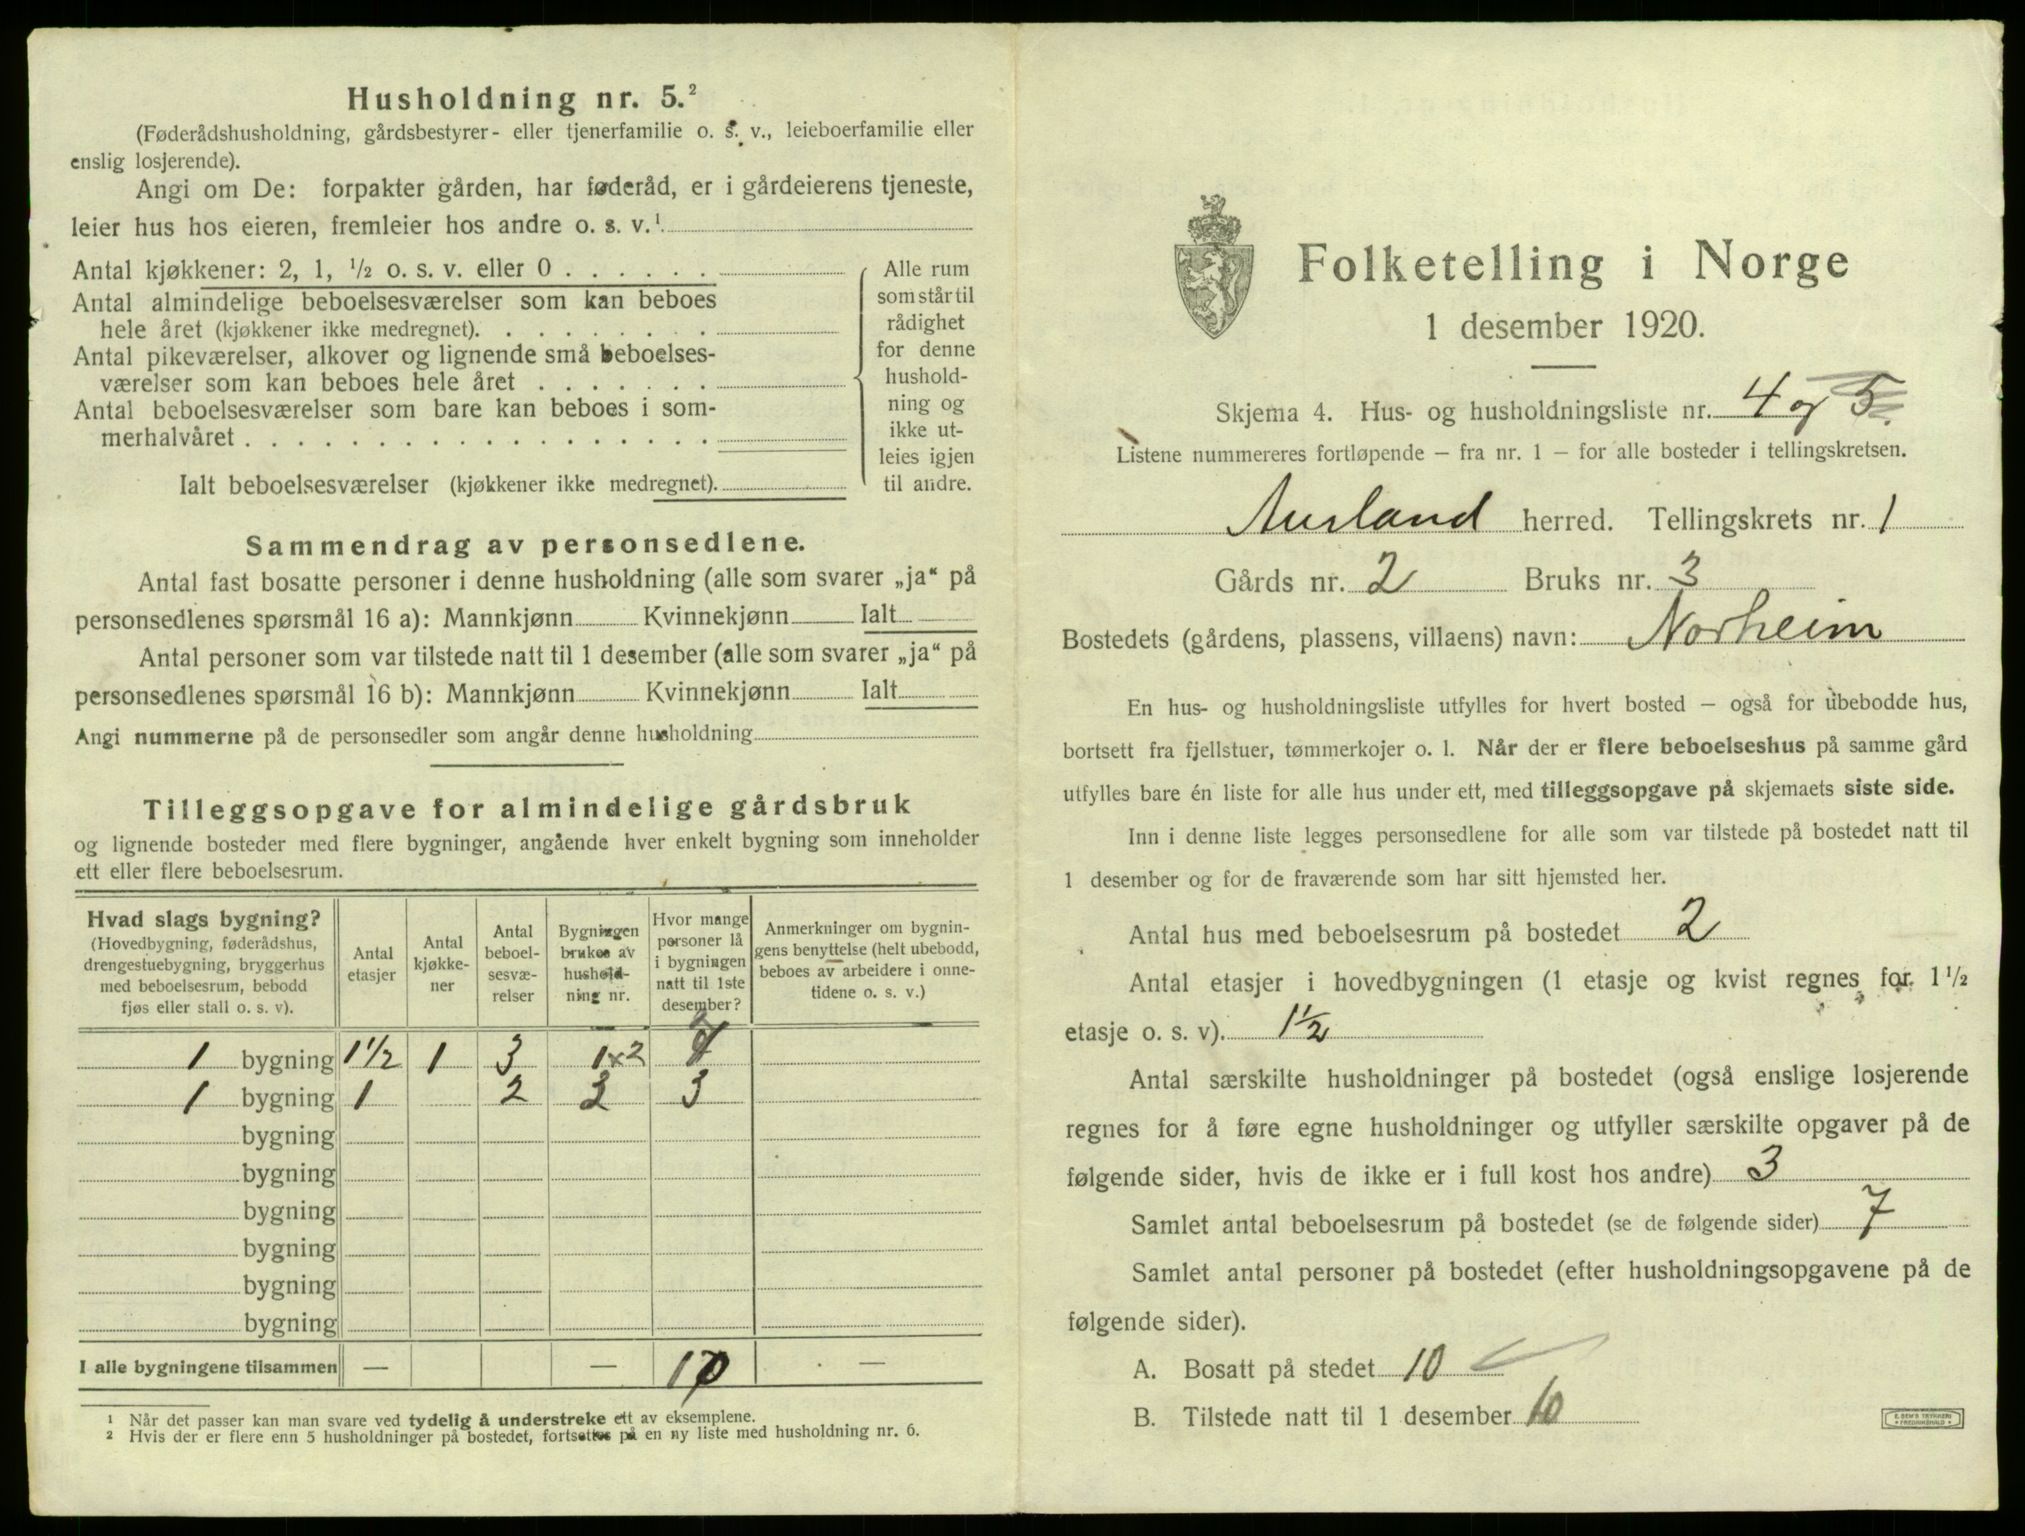 Husholdning nr. 5.²
(Føderådshusholdning, gårdsbestyrer- eller tjenerfamilie o. s. v., leieboerfamilie eller
enslig losjerende).
Angi om De: forpakter gården, har føderåd, er i gårdeierens tjeneste,
leier hus hos eieren, fremleier hos andre o. s. v.¹
Antal kjøkkener: 2, 1, ½ o. s. v. eller 0 . . . . . .
Antal almindelige beboelsesværelser som kan beboes
hele året (kjøkkener ikke medregnet). . . . . . . . .
Antal pikeværelser, alkover og lignende små beboelses-
værelser som kan beboes hele året . . . . . . .
Antal beboelsesværelser som bare kan beboes i som-
merhalvåret . . . . . . . . . . . . . . . . . .
Ialt beboelsesværelser (kjøkkener ikke medregnet).
Alle rum
som står til
rådighet
for denne
hushold-
ning og
ikke ut-
leies igjen
til andre.
Sammendrag av personsedlene.
Antal fast bosatte personer i denne husholdning (alle som svarer „ja“ på
personsedlenes spørsmål 16 a): Mannkjønn Kvinnekjønn Ialt
Antal personer som var tilstede natt til 1 desember (alle som svarer „ja“ på
personsedlenes spørsmål 16 b): Mannkjønn Kvinnekjønn Ialt
Angi nummerne på de personsedler som angår denne husholdning
Tilleggsopgave for almindelige gårdsbruk
og lignende bosteder med flere bygninger, angående hver enkelt bygning som inneholder
ett eller flere beboelsesrum.
Hvad slags bygning?
(Hovedbygning, føderådshus,
drengestuebygning, bryggerhus
med beboelsesrum, bebodd
fjøs eller stall o. s. v).
Antal
etasjer
Antal
kjøkke-
ner
Antal
beboel-
sesvæ-
relser
Bygningen
brukes av
hushold-
ning nr.
Hvor mange
personer lå
i bygningen
natt til 1ste
desember?
Anmerkninger om bygnin-
gens benyttelse (helt ubebodd,
beboes av arbeidere i onne-
tidene o. s. v.)
1 bygning 1½ 1 3 1×2
1 bygning 1 2 3
bygning
bygning
bygning
bygning
bygning
bygning
I alle bygningene tilsammen — — 10 —
¹ Når det passer kan man svare ved tydelig å understreke ett av eksemplene.
² Hvis der er flere enn 5 husholdninger på bostedet, fortsettes på en ny liste med husholdning nr. 6.
Folketelling i Norge
1 desember 1920.
Skjema 4. Hus- og husholdningsliste nr. 4 og 5.
Listene nummereres fortløpende — fra nr. 1 — for alle bosteder i tellingskretsen.
Aurland herred. Tellingskrets nr. 1
Gårds nr. 2 Bruks nr. 3
Bostedets (gårdens, plassens, villaens) navn: Norheim
En hus- og husholdningsliste utfylles for hvert bosted — også for ubebodde hus,
bortsett fra fjellstuer, tømmerkojer o. l. Når der er flere beboelseshus på samme gård
utfylles bare én liste for alle hus under ett, med tilleggsopgave på skjemaets siste side.
Inn i denne liste legges personsedlene for alle som var tilstede på bostedet natt til
1 desember og for de fraværende som har sitt hjemsted her.
Antal hus med beboelsesrum på bostedet 2
Antal etasjer i hovedbygningen (1 etasje og kvist regnes for 1½
etasje o. s. v). 1½
Antal særskilte husholdninger på bostedet (også enslige losjerende
regnes for å føre egne husholdninger og utfyller særskilte opgaver på de
følgende sider, hvis de ikke er i full kost hos andre) 3
Samlet antal beboelsesrum på bostedet (se de følgende sider) 7
Samlet antal personer på bostedet (efter husholdningsopgavene på de
følgende sider).
A. Bosatt på stedet 10
B. Tilstede natt til 1 desember 10
E. SEM'S TRYKKERI
FREDRIKSHALD